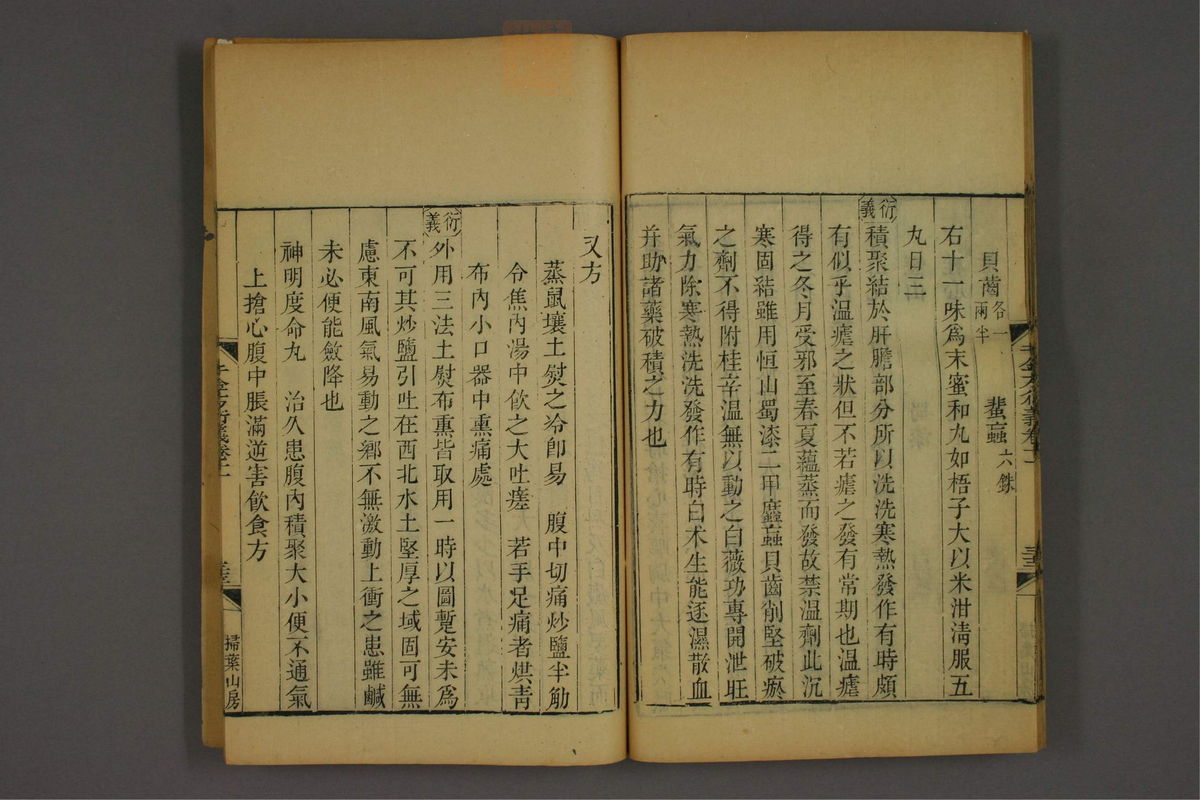 貝齒各一兩半 蜚蝱六銖
右十一味爲末蜜和丸如梧子大以米泔清服五
丸日三
衍義 積聚結於肝膽部分所以洗洗寒熱發作有時頗
有似乎温瘧之狀但不若瘧之發有常期也温瘧
得之冬月受邪至春夏蘊蒸而發故禁温劑此沉
寒固結雖用恒山蜀漆二甲䗪蝱貝齒削堅破瘀
之劑不得附桂辛温無以動之白薇功專開泄旺
氣力除寒熱洗洗發作有時白术生能逐濕散血
并助諸藥破積之力也
又方
蒸鼠壤土熨之冷卽易 腹中切痛炒鹽半觔
令焦內湯中飲之大吐瘥 若手足痛者烘青
布內小口器中熏痛處
衍義 外用三法土熨布熏皆取用一時以圖蹔安未爲
不可其炒鹽引吐在西北水土堅厚之域固可無
慮東南風氣易動之鄉不無激動上衝之患雖鹹
未必便能斂降也
神明度命丸 治久患腹內積聚大小便不通氣
上搶心腹中脹滿逆害飲食方
千金方衍義卷十一
掃葉山房